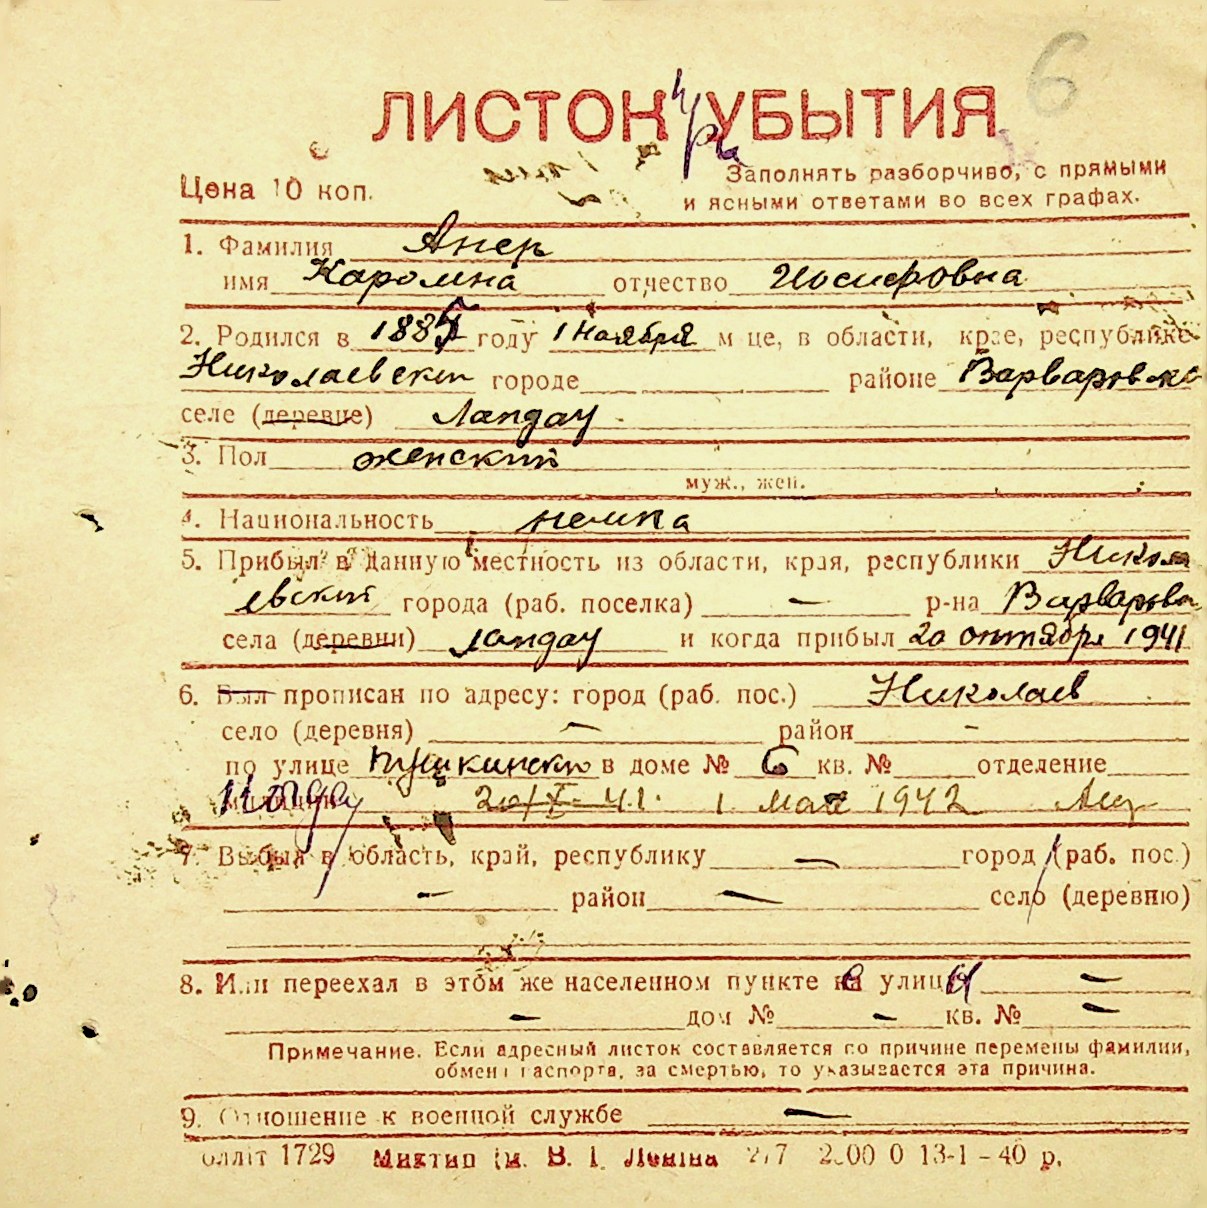 6
ЛИСТОК УБЫТИЯ
Цена 10 коп.
Заполнять разборчиво, с прямыми
и ясными ответами во всех графах.
1. Фамилия Анер
имя Каролина отчество Иосифовна
2. Родился в 1885 году 1 Ноября м це, в области, крае, республике
Николаевский городе районе Варваровка
селе (деревне) Ландау
3. Пол женский
муж., жен.
4. Национальность немка
5. Прибыл в данную местность из области, края, республики Никола
евский города (раб. поселка) — р-на Варваровк
села (деревни) Ландау и когда прибыл 20 октября 1941
6. Был прописан по адресу: город (раб. пос.) Николаев
село (деревня) — район —
по улице Пушкинско в доме № 6 кв. № отделение
Когда 20/X-41. 1 Мая 1942
7. Выбыл в область, край, республику — город (раб. пос.)
— район — село (деревню)
8. Или переехал в этом же населенном пункте улицы —
— дом № — кв. № —
Примечание. Если адресный листок составляется по причине перемены фамилии,
обмена паспорта, за смертью, то указывается эта причина.
9. Отношение к военной службе —
Блліт 1729 Миктип ім. В. І. Леніна 13-1-40 р.